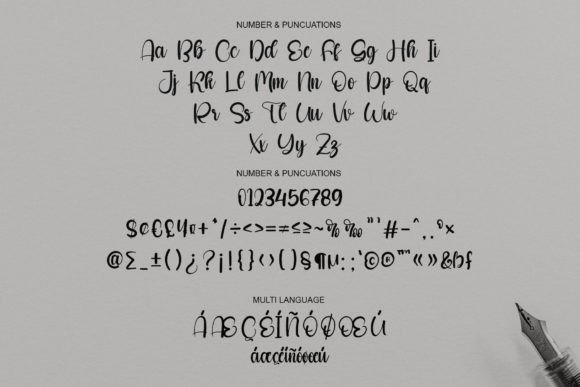 NUMBER & PUNCUATIONS
Aa Bb Cc Dd Ee Ff Gg Hh Ii
Jj Kk Ll Mm Nn Oo Pp Qq
Rr Ss Tt Uu Vv Ww
Xx Yy Zz
NUMBER & PUNCUATIONS
0123456789
$¢€£¥¤+*/÷<>=≠≤≥~%‰"'#-^,.ºª×
@Σ_±()¿?¡!{}‹›[]§¶µ:;'©®™«»&bf
MULTI LANGUAGE
ÁÆÇÉÍÑÓØŒÚ
áæçéíñóøœú